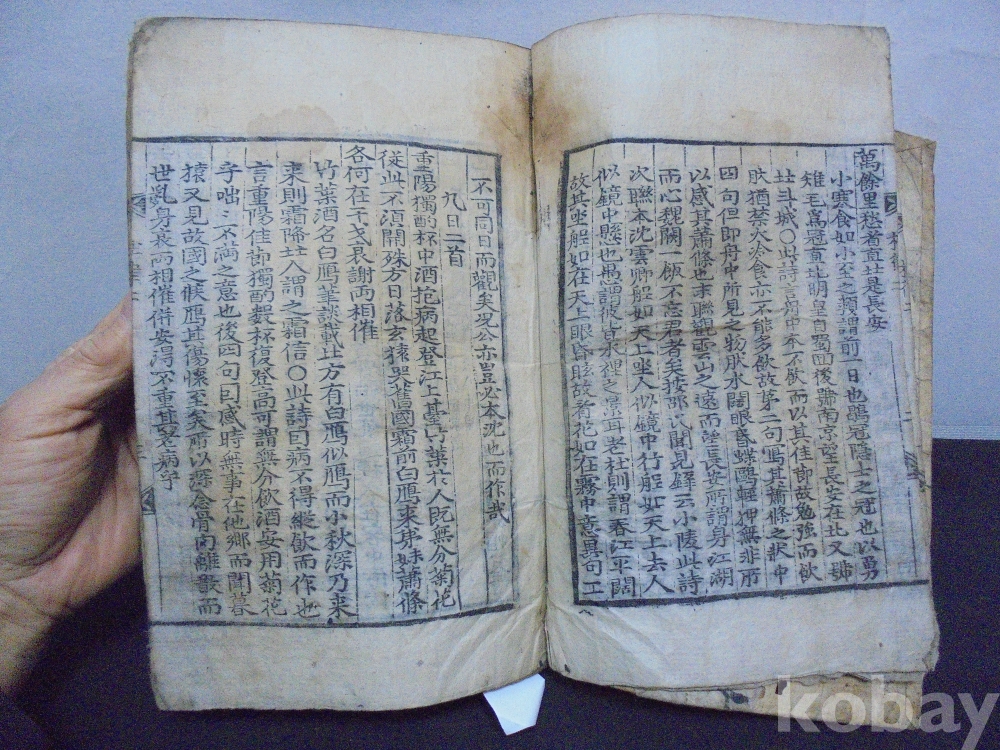 萬餘里愁看直北是長安
小寒食如小至之類謂前一日也鶡冠隱士之冠也以勇
雉毛爲冠直北明皇自蜀回後號南京望長安在北又號
北斗城〇此詩言舟中本不飲而以其佳節故勉強而飲
肰猶禁火冷食亦不能多飲故第二句寫其蕭條之狀中
四句但即舟中所見之物肰水濶眼昏蝶鷗輕狎無非所
以感其蕭條也末聯觀雲山之遠而望長安所謂身江湖
而心魏闕一飯不忘君者矣 聞見 云小陵此詩
次聯本沈雲卿船如天上坐人似鏡中行船如天上去人
似鏡中懸也愚謂彼皆水裡之景耳老杜則謂春江平闊
故其坐船如在天上眼昏眩故看花如在霧中意異句工
不可同日而觀矣况公亦豈必本沈也而作哉
九日二首
重陽獨酌杯中酒抱病起登江上臺竹葉於人旣無分菊花
從此不須開殊方日落玄猿哭舊國霜前白鴈來弟妹蕭條
各何在干戈衰謝兩相催
竹葉酒名白鴈筆談載北方有白鴈似鴈而小秋深乃來
來則霜降北人謂之霜信〇此詩因病不得縱飲而作也
言重陽佳節獨酌數杯復登高可謂無分飲酒妄用菊花
乎咄咄不滿之意也後四句因感時無事在他鄕而聞暮
猿又見故國之候鴈其傷愫至矣所以深念骨肉離散而
世亂身衰兩相催併安得不重其老病乎
kobay